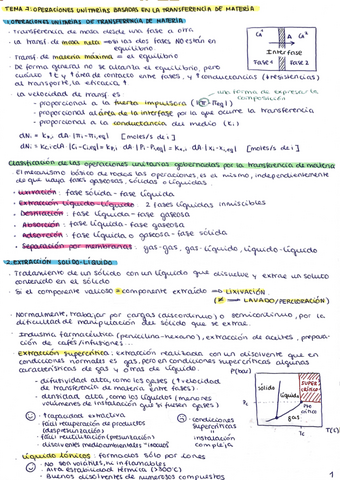 TEMA 7: OPERACIONES UNITARIAS BASADAS EN LA TRANSFERENCIA DE MATERIA
1. OPERACIONES UNITARIAS DE TRANSFERENCIA DE MATERIA
- Transferencia de masa desde una fase a otra
- La transf. de masa neta → si las dos fases NO están en equilibrio
- Transf. de materia máxima = el equilibrio
- De forma general no se alcanza el equilibrio, pero cuánto ↑ t y ↑ área de contacto entre fases, y ↑ conductancias (↓ resistencias) al transporte, la eficacia ↑
Interfase
Fase 1
Fase 2
- La velocidad de transf. es
una forma de expresar la composición
- proporcional a la fuerza impulsora
- proporcional al área de la interfase por la que ocurre la transferencia
- proporcional a la conductancia del medio
[moles/s de i]
[moles/s de i]
Clasificación de las operaciones unitarias gobernadas por la transferencia de materia
- El mecanismo básico de todas las operaciones, es el mismo, independientemente de que haya fases gaseosas, sólidas o líquidas.
- Lixiviación: fase sólida - fase líquida
- Extracción líquido-líquido: 2 fases líquidas inmiscibles
- Destilación: fase líquida - fase gaseosa
- Absorción: fase líquida - fase gaseosa
- Adsorción: fase líquida o gaseosa - fase sólida
- Separación por membranas: gas-gas, gas-líquido, líquido-líquido
2. EXTRACCIÓN SÓLIDO-LÍQUIDO
- Tratamiento de un sólido con un líquido que disuelve y extrae un soluto contenido en el sólido
- Si el componente valioso = componente extraído → LIXIVIACIÓN
(≠ → LAVADO/PERCOLACIÓN)
- Normalmente, trabajar por cargas (discontinuo) o semicontinuo, por la dificultad de manipulación del sólido que se extrae.
- Industria farmacéutica (penicilina-hexano), extracción de aceites, preparación de cafés/infusiones...
- Extracción supercrítica: extracción realizada con un disolvente que en condiciones normales es gas, pero en condiciones supercríticas algunas características de gas y otras de líquido.
P(bar)
- difusividad alta, como los gases (↑ velocidad de transferencia de materia entre fases)
- densidad alta, como los líquidos (menores volúmenes de instalación que si fuesen gases)
sólido
líquido
SUPER CRÍTICO
Pc
Pto crítico
gas
Tc
T(ºC)
- ↑ capacidad extractiva
- fácil recuperación de productos (despresurización)
- fácil reutilización (presurización)
- disolventes medioambientales
- condiciones supercríticas
instalación compleja
- Líquidos iónicos: formados sólo por iones
- No son volátiles, ni inflamables
- Alta estabilidad térmica (>300ºC)
- Buenos disolventes de numerosos compuestos
1